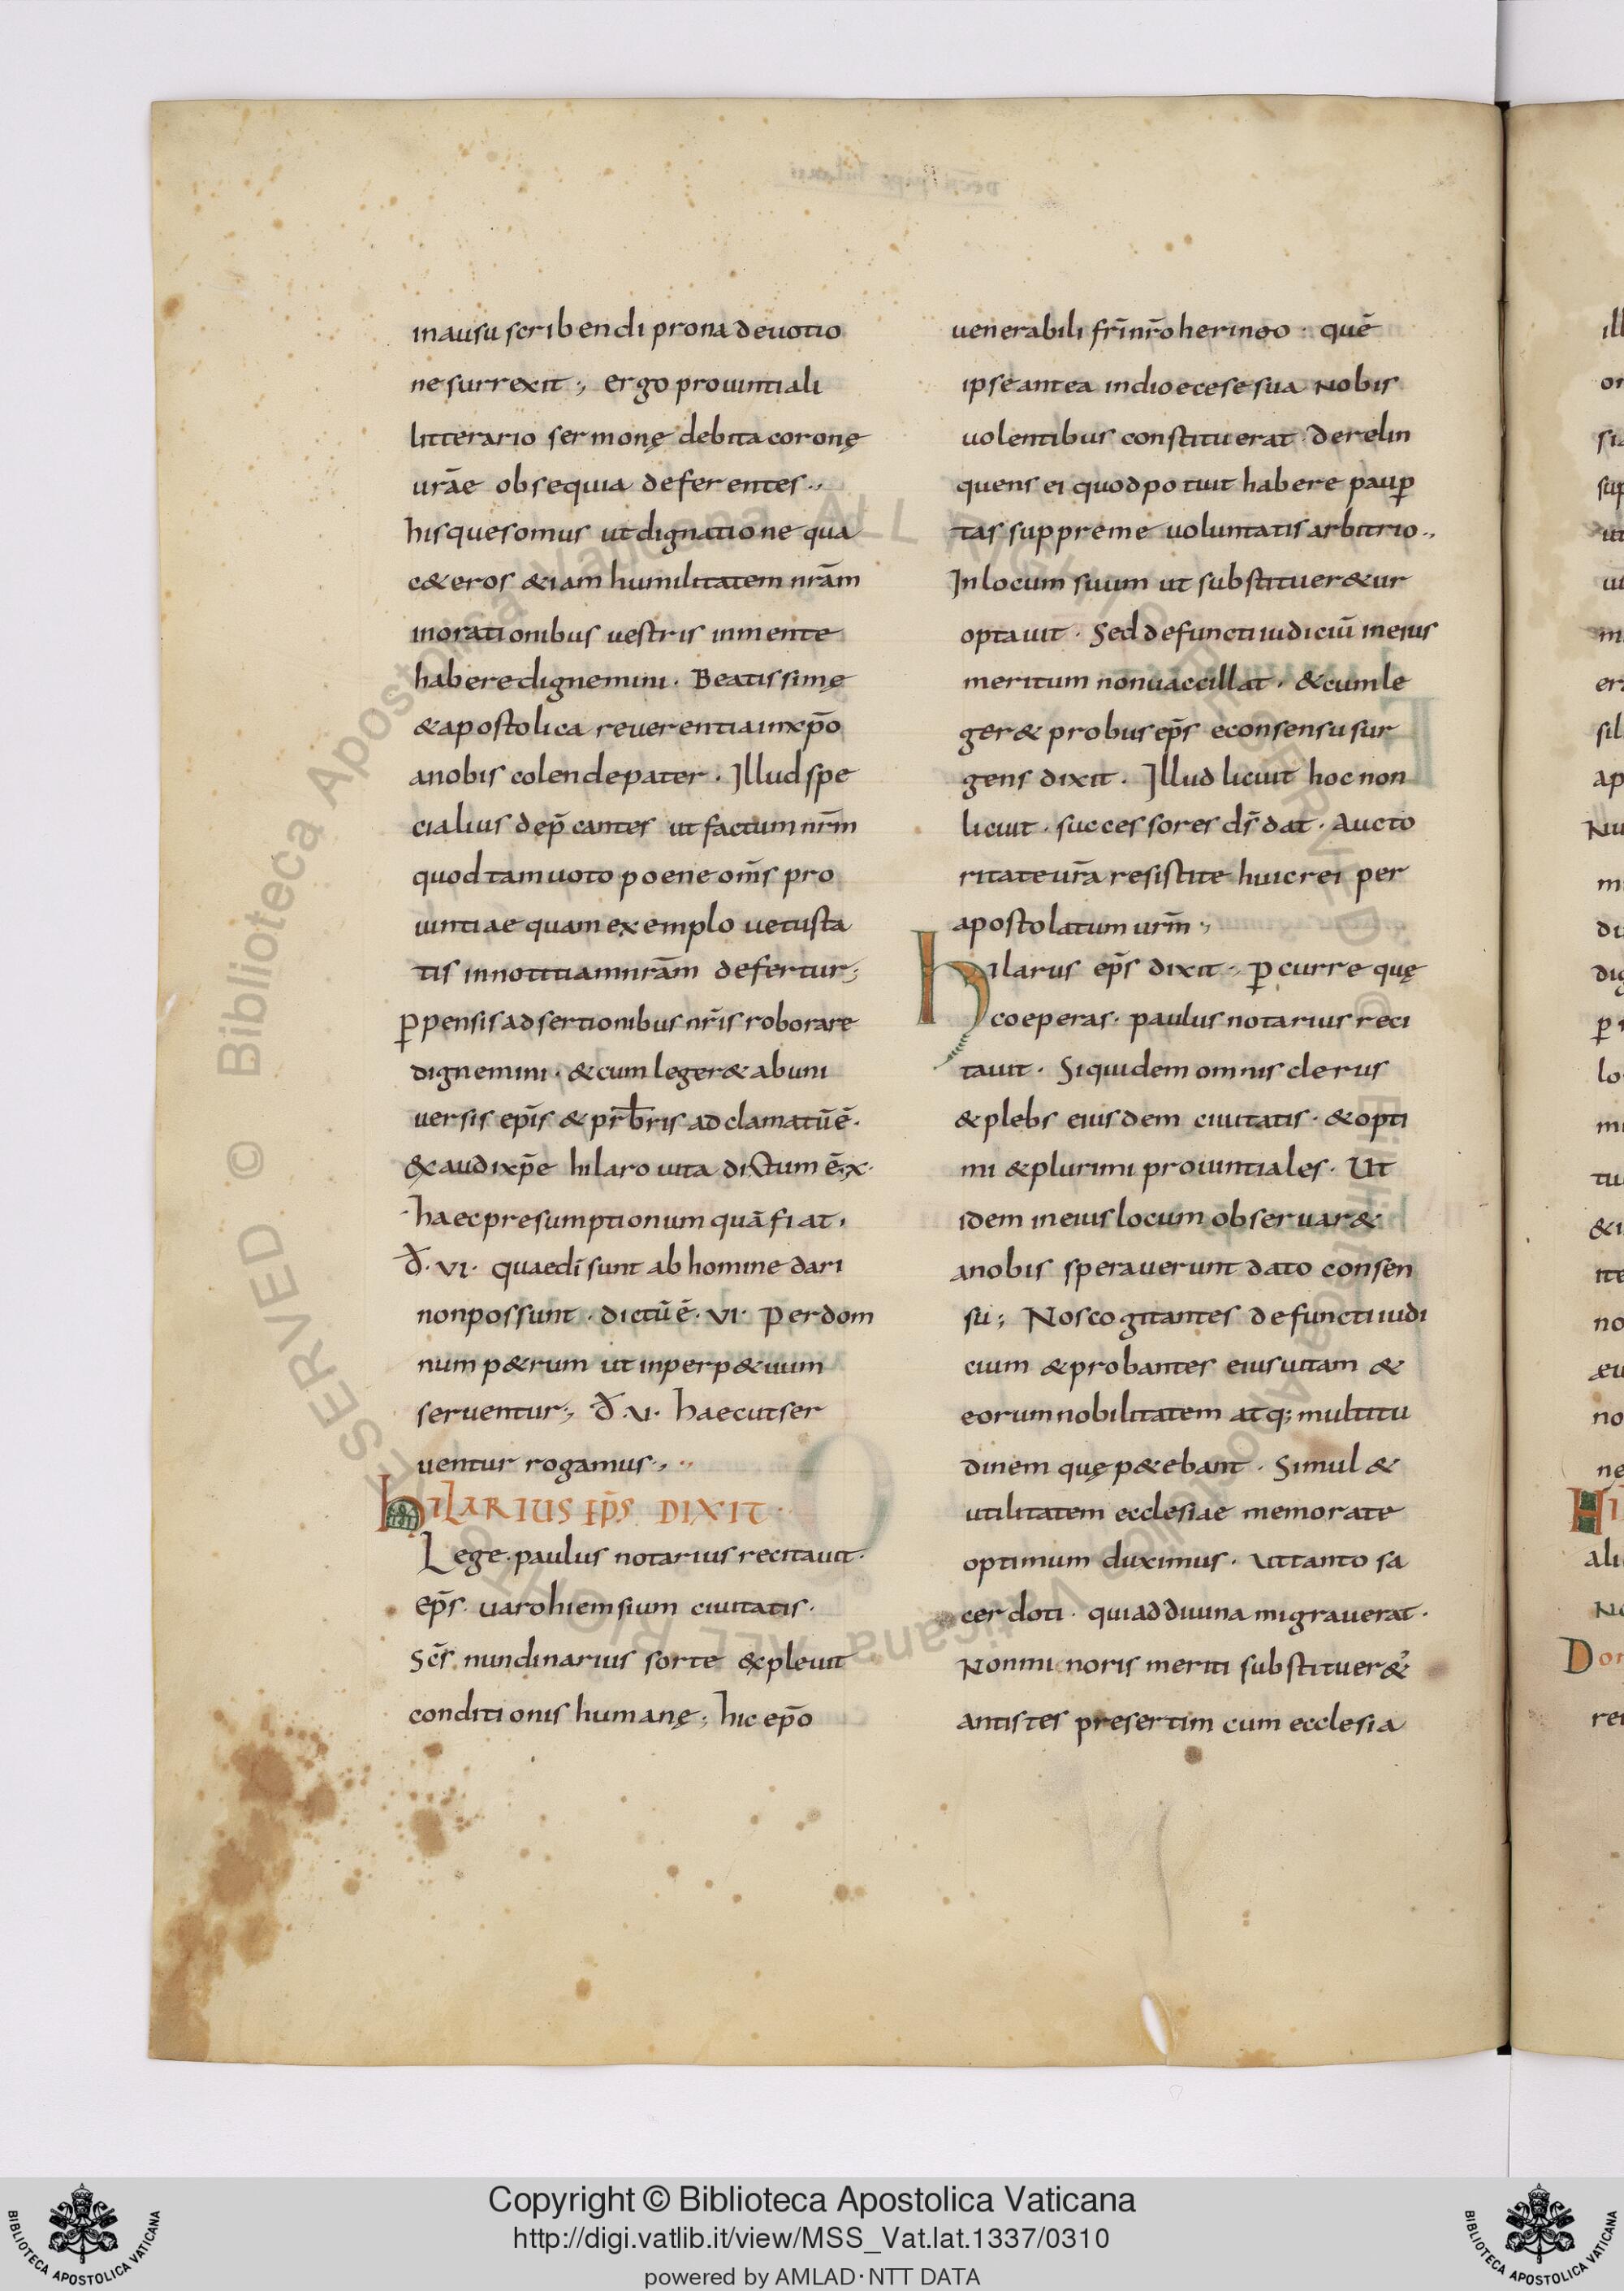 inausu scribendi prona deuotio
ne surrexit ·, ergo prouintiali
litterario sermonę debita coronę
urāe obsequia deferentes ·,
hisquesomus ut dignatione qua
c&eros &iam humilitatem nrām
inorationibus uestris inmente
haberedignemini · Beatissimę
&apostolica reuerentia inxp̄o
anobis colendepater · Illud spe
cialius dep̄cantes ut factum nrm̄
quod tam uoto poene om̄s pro
uintiae quam exemplo uetusta
tis innotitiamnrām defertur ;
ꝑpensis adsertionibus nr̄is roborare
dignemini · &cum leger& abuni
versis ep̄is & prb̄ris adclamatū ē ·
&xaudixp̄e hilaro uita dictum ē ; x ·
haecpresumptionum quā fiat ,
đ · vi · quaedī sunt ab homine dari
nonpossunt · dictū ē · vi · Perdom
num p&rum ut inperp&uum
seruentur ·, đ · v · haecutser
uentur rogamus ·,
hILARIUS EP̄S DIXIT ·
Lege · paulus notarius recitauit ·
ep̄s · uarohiemsium ciuitatis ·
Sc̄s nundinarius sorte &xpleuit
conditionis humanę ; hic ep̄o
uenerabili fr̄inr̄o herineo · quē
ipse antea indioecese sua Nobis
uolentibus constituerat · derelin
quens ei quodpotuit habere pauꝑ
tas suppreme uoluntatis arbitrio ·,
In locum suum ut substituer&ur
optauit · Sed defuncti iudiciū ineius
meritum nonuaccillat · &cumle
ger& probus ep̄s econsensu sur
gens dixit · Illud licuit hoc non
licuit · successores ds̄ dat · Aucto
ritate ur̄a resistite huicrei per
apostolatum urm̄ ·,
hilarus ep̄s dixit ·, ꝑcurre quę
coeperas · paulus notarius reci
tauit · Siquidem omnis clerus
&plebs eiusdem ciuitatis · &opti
mi &plurimi prouintiales · Ut
idem ineius locum obseruar&
anobis sperauerunt dato consen
su ; Nos cogitantes defuncti iudi
cium &probantes eius uitam &
eorum nobilitatem atq; multitu
dinem quę p&ebant · Simul &
utilitatem ecclesiae memorate
optimum duximus · Uttanto sa
cerdoti · quiad diuina migrauerat ·
Nonmi noris meriti substituer&
antistes presertim cum ecclesia
Copyright © Biblioteca Apostolica Vaticana
http://digi.vatlib.it/view/MSS_Vat.lat.1337/0310
powered by AMLAD·NTT DATA